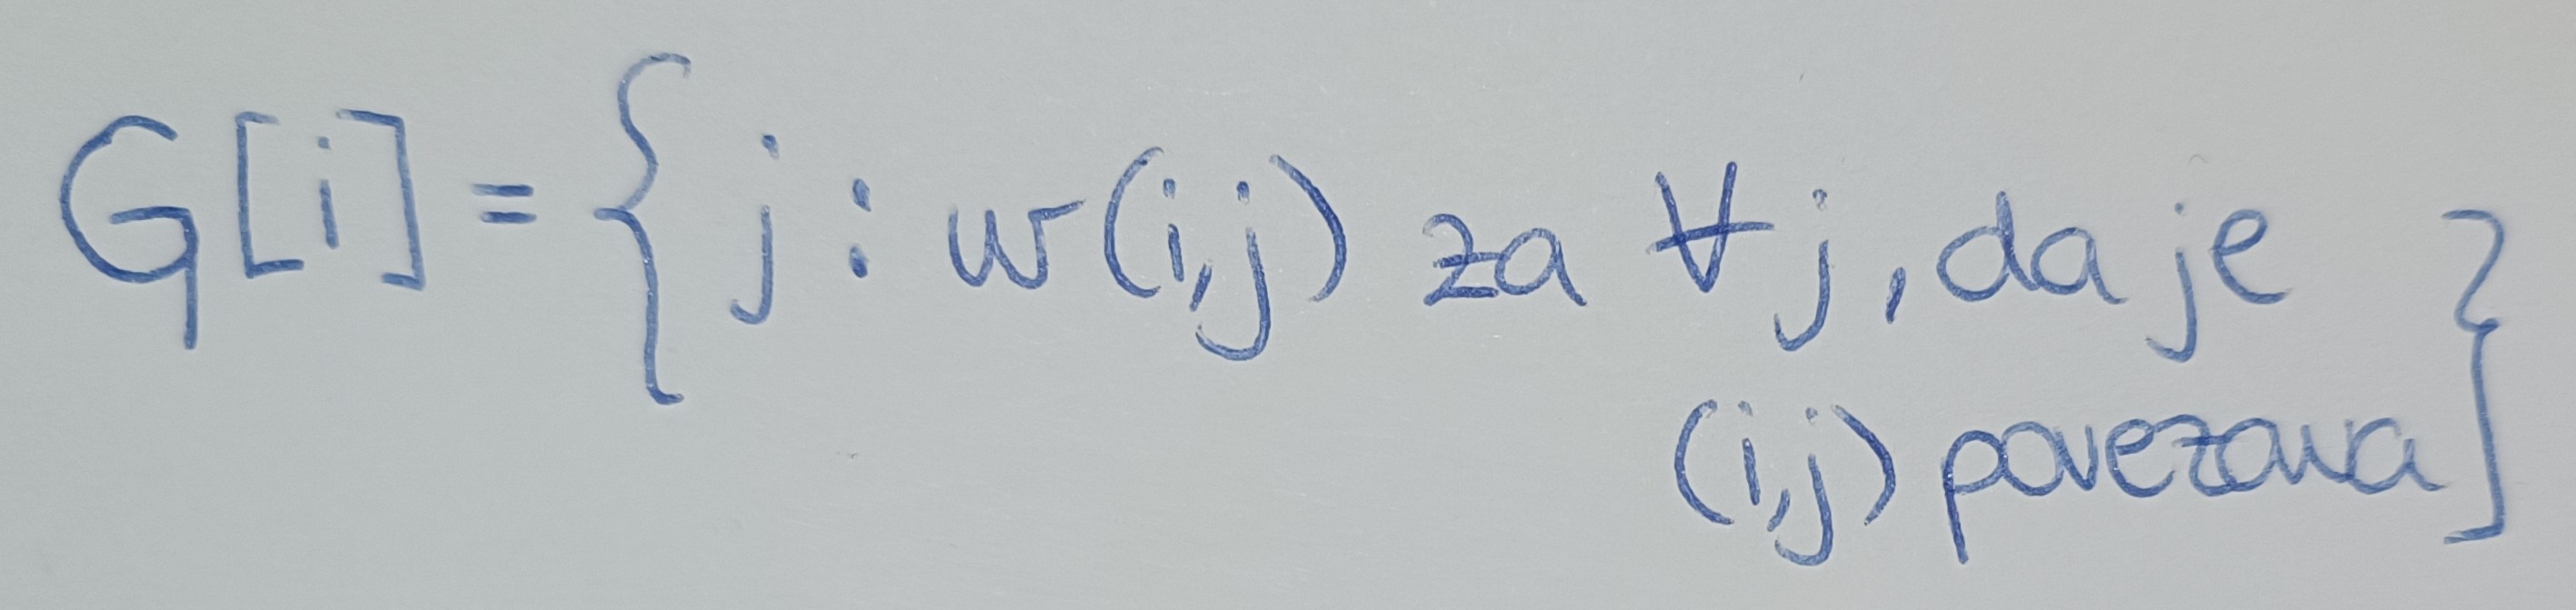 G[i] = { j : w(i,j) za ∀ j, da je
(i,j) povezava }